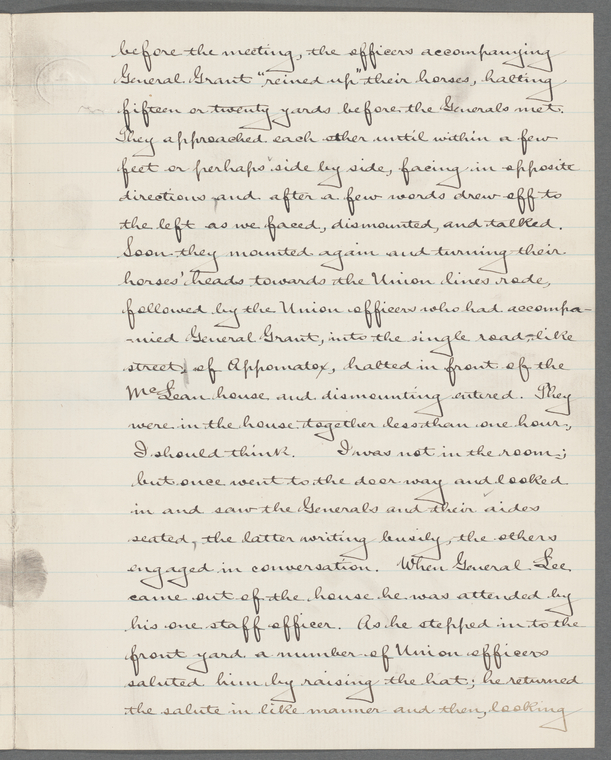 before the meeting, the officers accompanying
General Grant "reined up" their horses, halting
fifteen or twenty yards before the Generals met.
They approached each other until within a few
feet or perhaps side by side, facing in opposite
directions and after a few words drew off to
the left as we faced, dismounted, and talked.
Soon they mounted again and turning their
horses' heads towards the Union lines rode,
followed by the Union officers who had accompa-
-nied General Grant, into the single road-like
street, of Appomatox, halted in front of the
McLean house and dismounting entered. They
were in the house together less than one hour,
I should think. I was not in the room;
but once went to the door way and looked
in and saw the Generals and their aides
seated, the latter writing busily, the others
engaged in conversation. When General Lee
came out of the house he was attended by
his one staff officer. As he stepped into the
front yard a number of Union officers
saluted him by raising the hat; he returned
the salute in like manner and then, looking